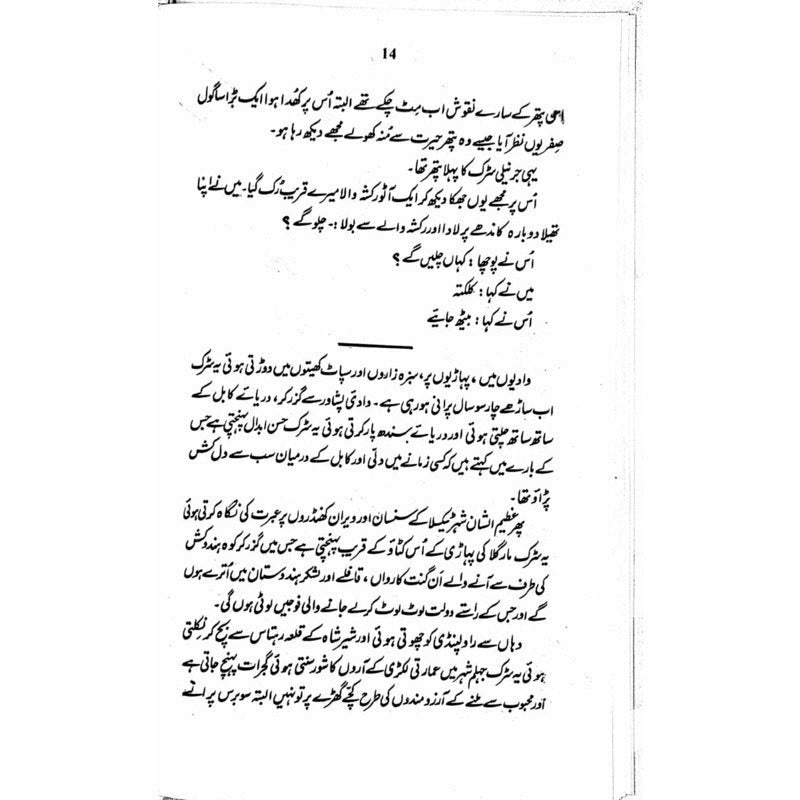 14
اسی پتھر کے سارے نقوش اب مِٹ چکے تھے البتہ اُس پر کھُدا ہوا ایک بڑا سا گول
صِفر یوں نظر آیا جیسے وہ پتھر حیرت سے مُنہ کھولے مجھے دیکھ رہا ہو۔
یہی جرنیلی سڑک کا پہلا پتھر تھا۔
اُس پر مجھے یوں جھکا دیکھ کر ایک آٹو رکشہ والا میرے قریب رُک گیا۔ میں نے اپنا
تھیلا دوبارہ کاندھے پر لادا اور رکشہ والے سے بولا :۔ چلو گے ؟
اُس نے پوچھا : کہاں چلیں گے ؟
میں نے کہا : کلکتہ
اُس نے کہا : بیٹھ جایئے
وادیوں میں ، پہاڑیوں پر، سبزہ زاروں اور سپاٹ کھیتوں میں دوڑتی ہوئی یہ سڑک
اب ساڑھے چار سو سال پرانی ہو رہی ہے۔ وادیٔ پشاور سے گزر کر، دریائے کابل کے
ساتھ ساتھ چلتی ہوئی اور دریائے سندھ پار کرتی ہوئی یہ سڑک حسن ابدال پہنچتی ہے جس
کے بارے میں کہتے ہیں کہ کسی زمانے میں دلّی اور کابل کے درمیان سب سے دل کش
پڑاؤ تھا۔
پھر عظیم الشان شہر ٹیکسلا کے سنسان اور ویران کھنڈروں پر عبرت کی نگاہ کرتی ہوئی
یہ سڑک مارگلا کی پہاڑی کے اُس کٹاؤ کے قریب پہنچتی ہے جس میں گزر کر کوہ ہندوکش
کی طرف سے آنے والے اَن گنت کارواں ، قافلے اور لشکر ہندوستان میں اُترے ہوں
گے اور جس کے راستے دولت لوٹ لوٹ کر لے جانے والی فوجیں لوٹی ہوں گی۔
وہاں سے راولپنڈی کو چھوتی ہوئی اور شیر شاہ کے قلعہ رہتاس سے بچ کر نکلتی
ہوئی یہ سڑک جہلم شہر میں عمارتی لکڑی کے آروں کا شور سنتی ہوئی گجرات پہنچ جاتی ہے
اور محبوب سے ملنے کے آرزومندوں کی طرح کچے گھڑے پر تو نہیں البتہ سو برس پرانے